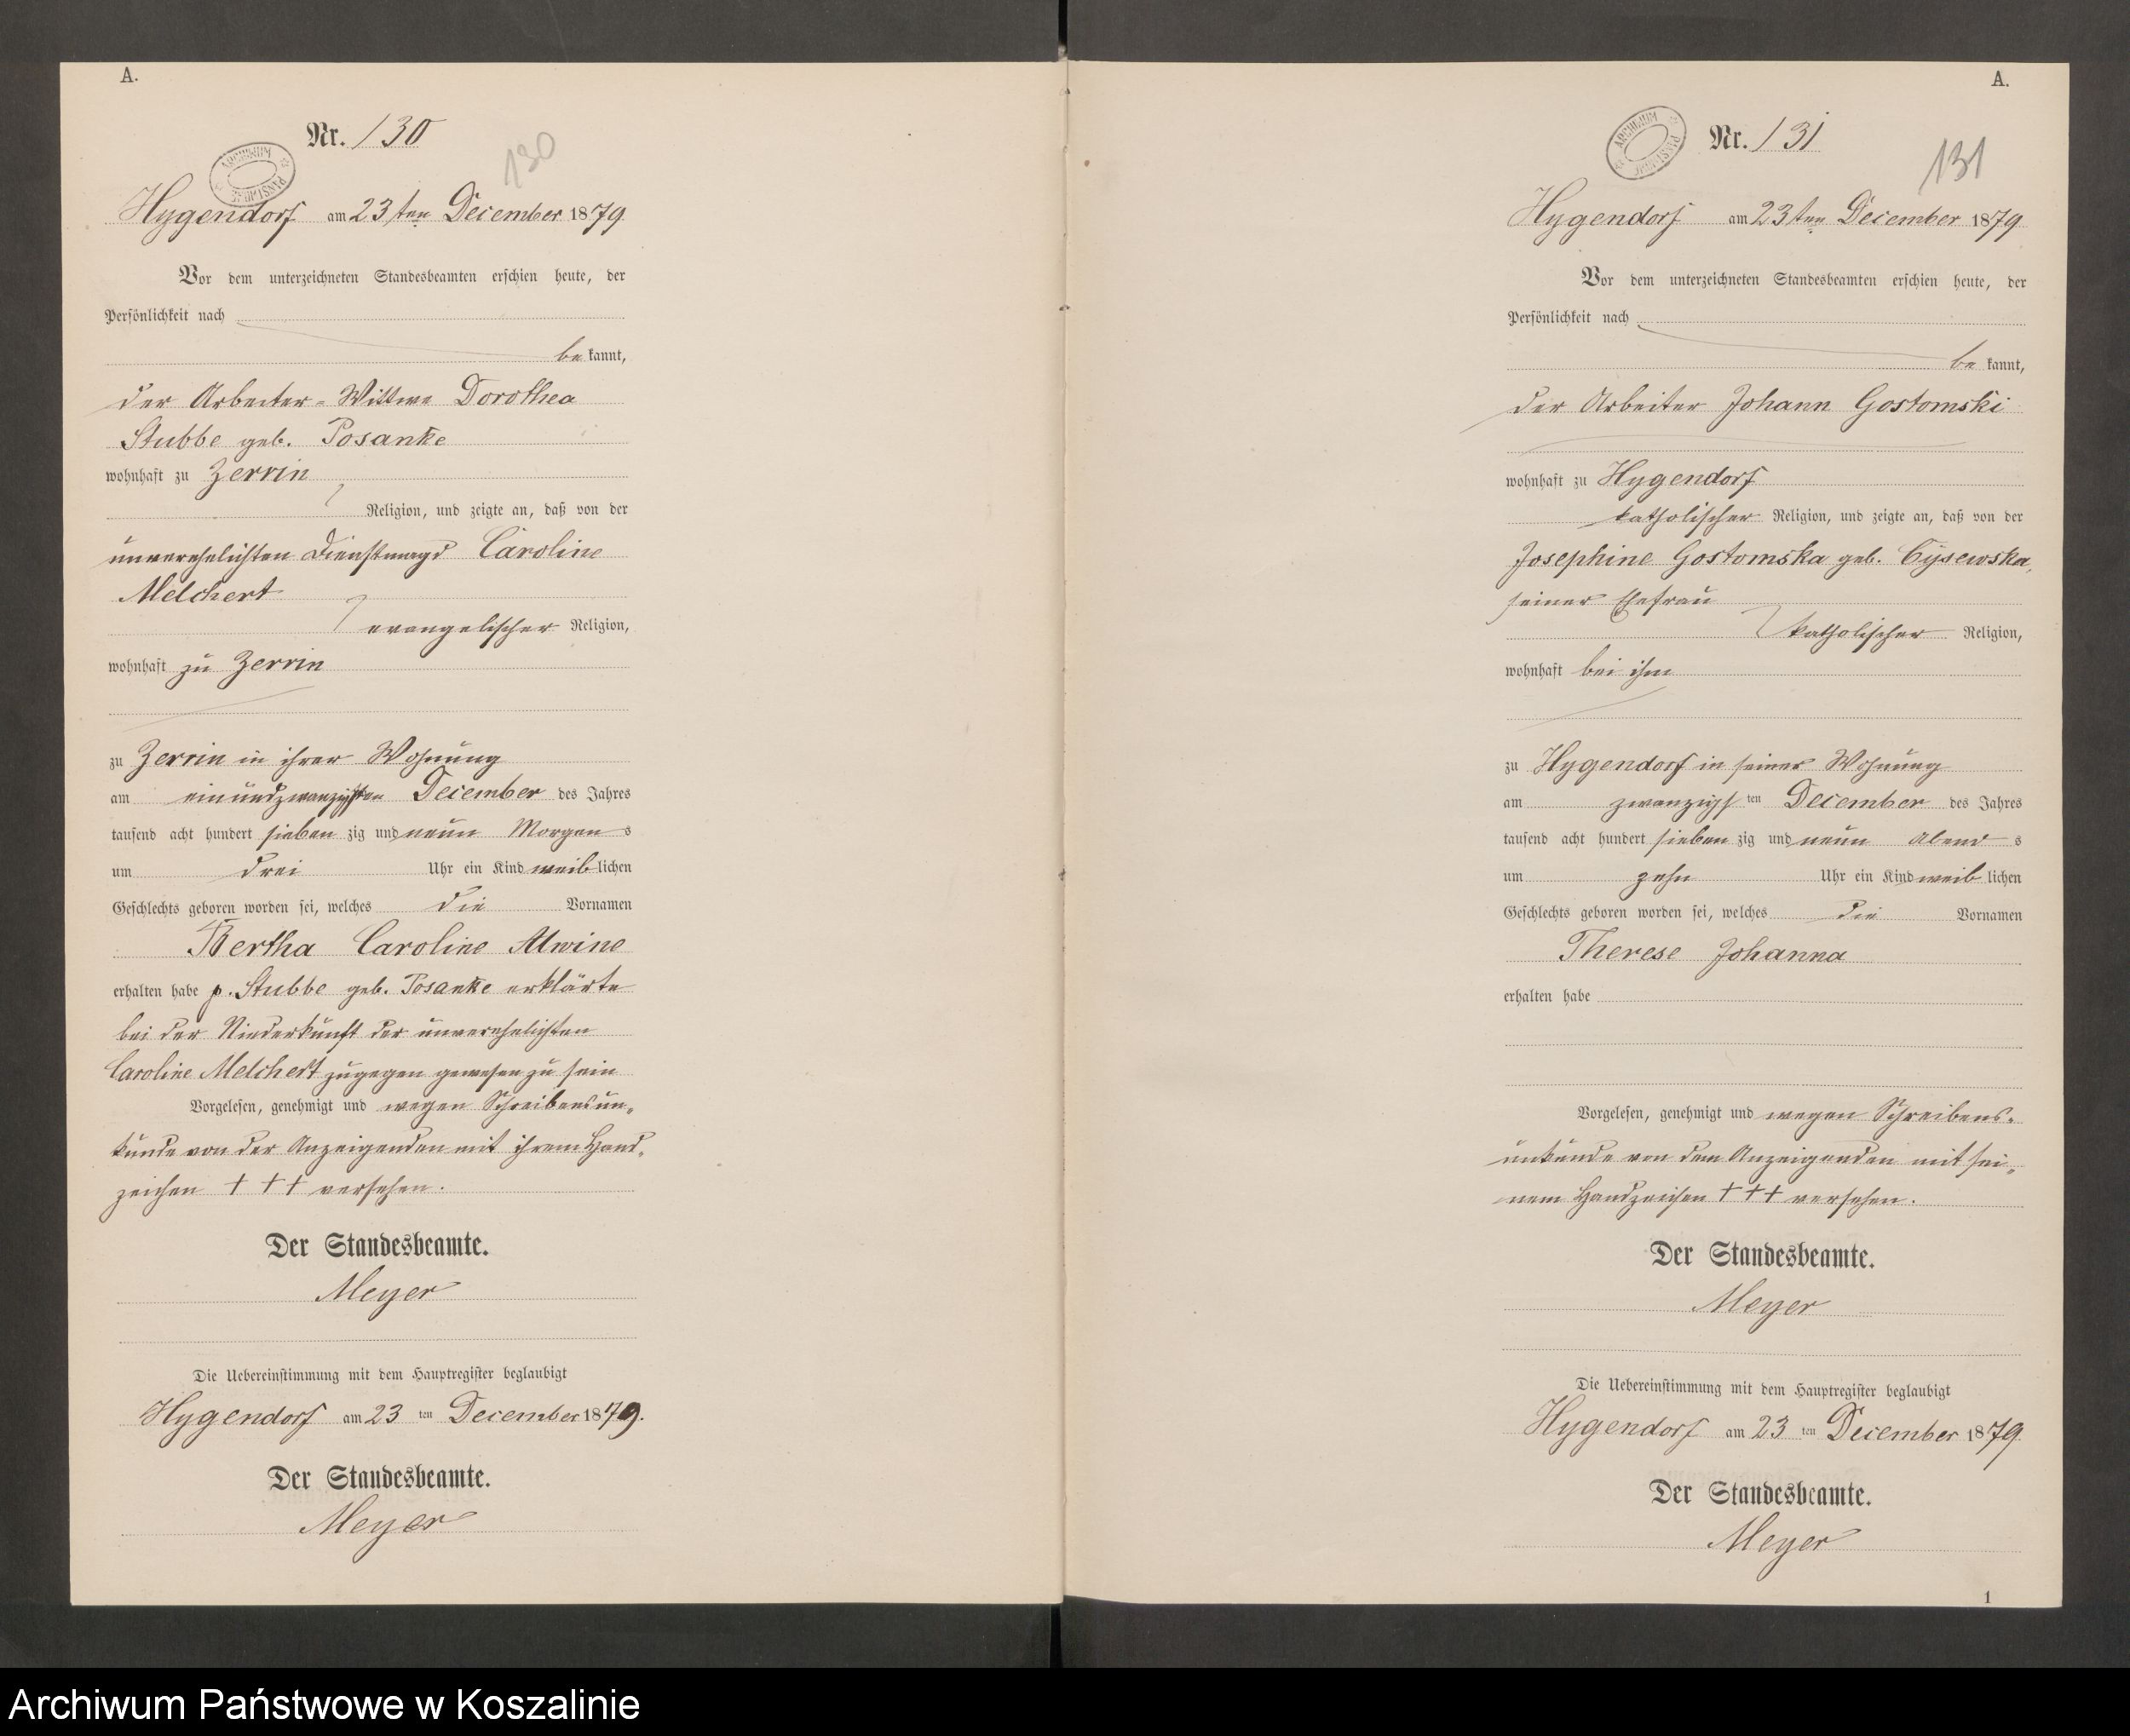 A.
Nr. 130
130
ARCHIWUM PAŃSTWOWE
Hygendorf am 23ten December 1879.
Vor dem unterzeichneten Standesbeamten erschien heute, der
Persönlichkeit nach
bekannt,
der Arbeiter-Wittwe Dorothea
Stubbe geb. Posanke
wohnhaft zu Zerrin
Religion, und zeigte an, daß von der
unverehelichten Dienstmagd Caroline
Melchert
evangelischer Religion,
wohnhaft zu Zerrin
zu Zerrin in ihrer Wohnung
am einundzwanzigsten December des Jahres
tausend acht hundert siebenzig und neun Morgens
um drei Uhr ein Kind weiblichen
Geschlechts geboren worden sei, welches die Vornamen
Bertha Caroline Alwine
erhalten habe p. Stubbe geb. Posanke erklärte
bei der Niederkunft der unverehelichten
Caroline Melchert zugegen gewesen zu sein
Vorgelesen, genehmigt und wegen Schreibensun-
kunde von der Anzeigenden mit ihrem Hand-
zeichen +++ versehen.
Der Standesbeamte.
Meyer
Die Uebereinstimmung mit dem Hauptregister beglaubigt
Hygendorf am 23ten December 1879.
Der Standesbeamte.
Meyer
A.
Nr. 131
131
ARCHIWUM PAŃSTWOWE
Hygendorf am 23ten December 1879
Vor dem unterzeichneten Standesbeamten erschien heute, der
Persönlichkeit nach
bekannt,
der Arbeiter Johann Gostomski
wohnhaft zu Hygendorf
katholischer Religion, und zeigte an, daß von der
Josephine Gostomska geb. Cysewska,
seiner Ehefrau
katholischer Religion,
wohnhaft bei ihm
zu Hygendorf in seiner Wohnung
am zwanzigsten December des Jahres
tausend acht hundert siebenzig und neun Abends
um zehn Uhr ein Kind weiblichen
Geschlechts geboren worden sei, welches die Vornamen
Therese Johanna
erhalten habe
Vorgelesen, genehmigt und wegen Schreibens-
unkunde von dem Anzeigenden mit sei-
nem Handzeichen +++ versehen.
Der Standesbeamte.
Meyer
Die Uebereinstimmung mit dem Hauptregister beglaubigt
Hygendorf am 23ten December 1879.
Der Standesbeamte.
Meyer
1
Archiwum Państwowe w Koszalinie